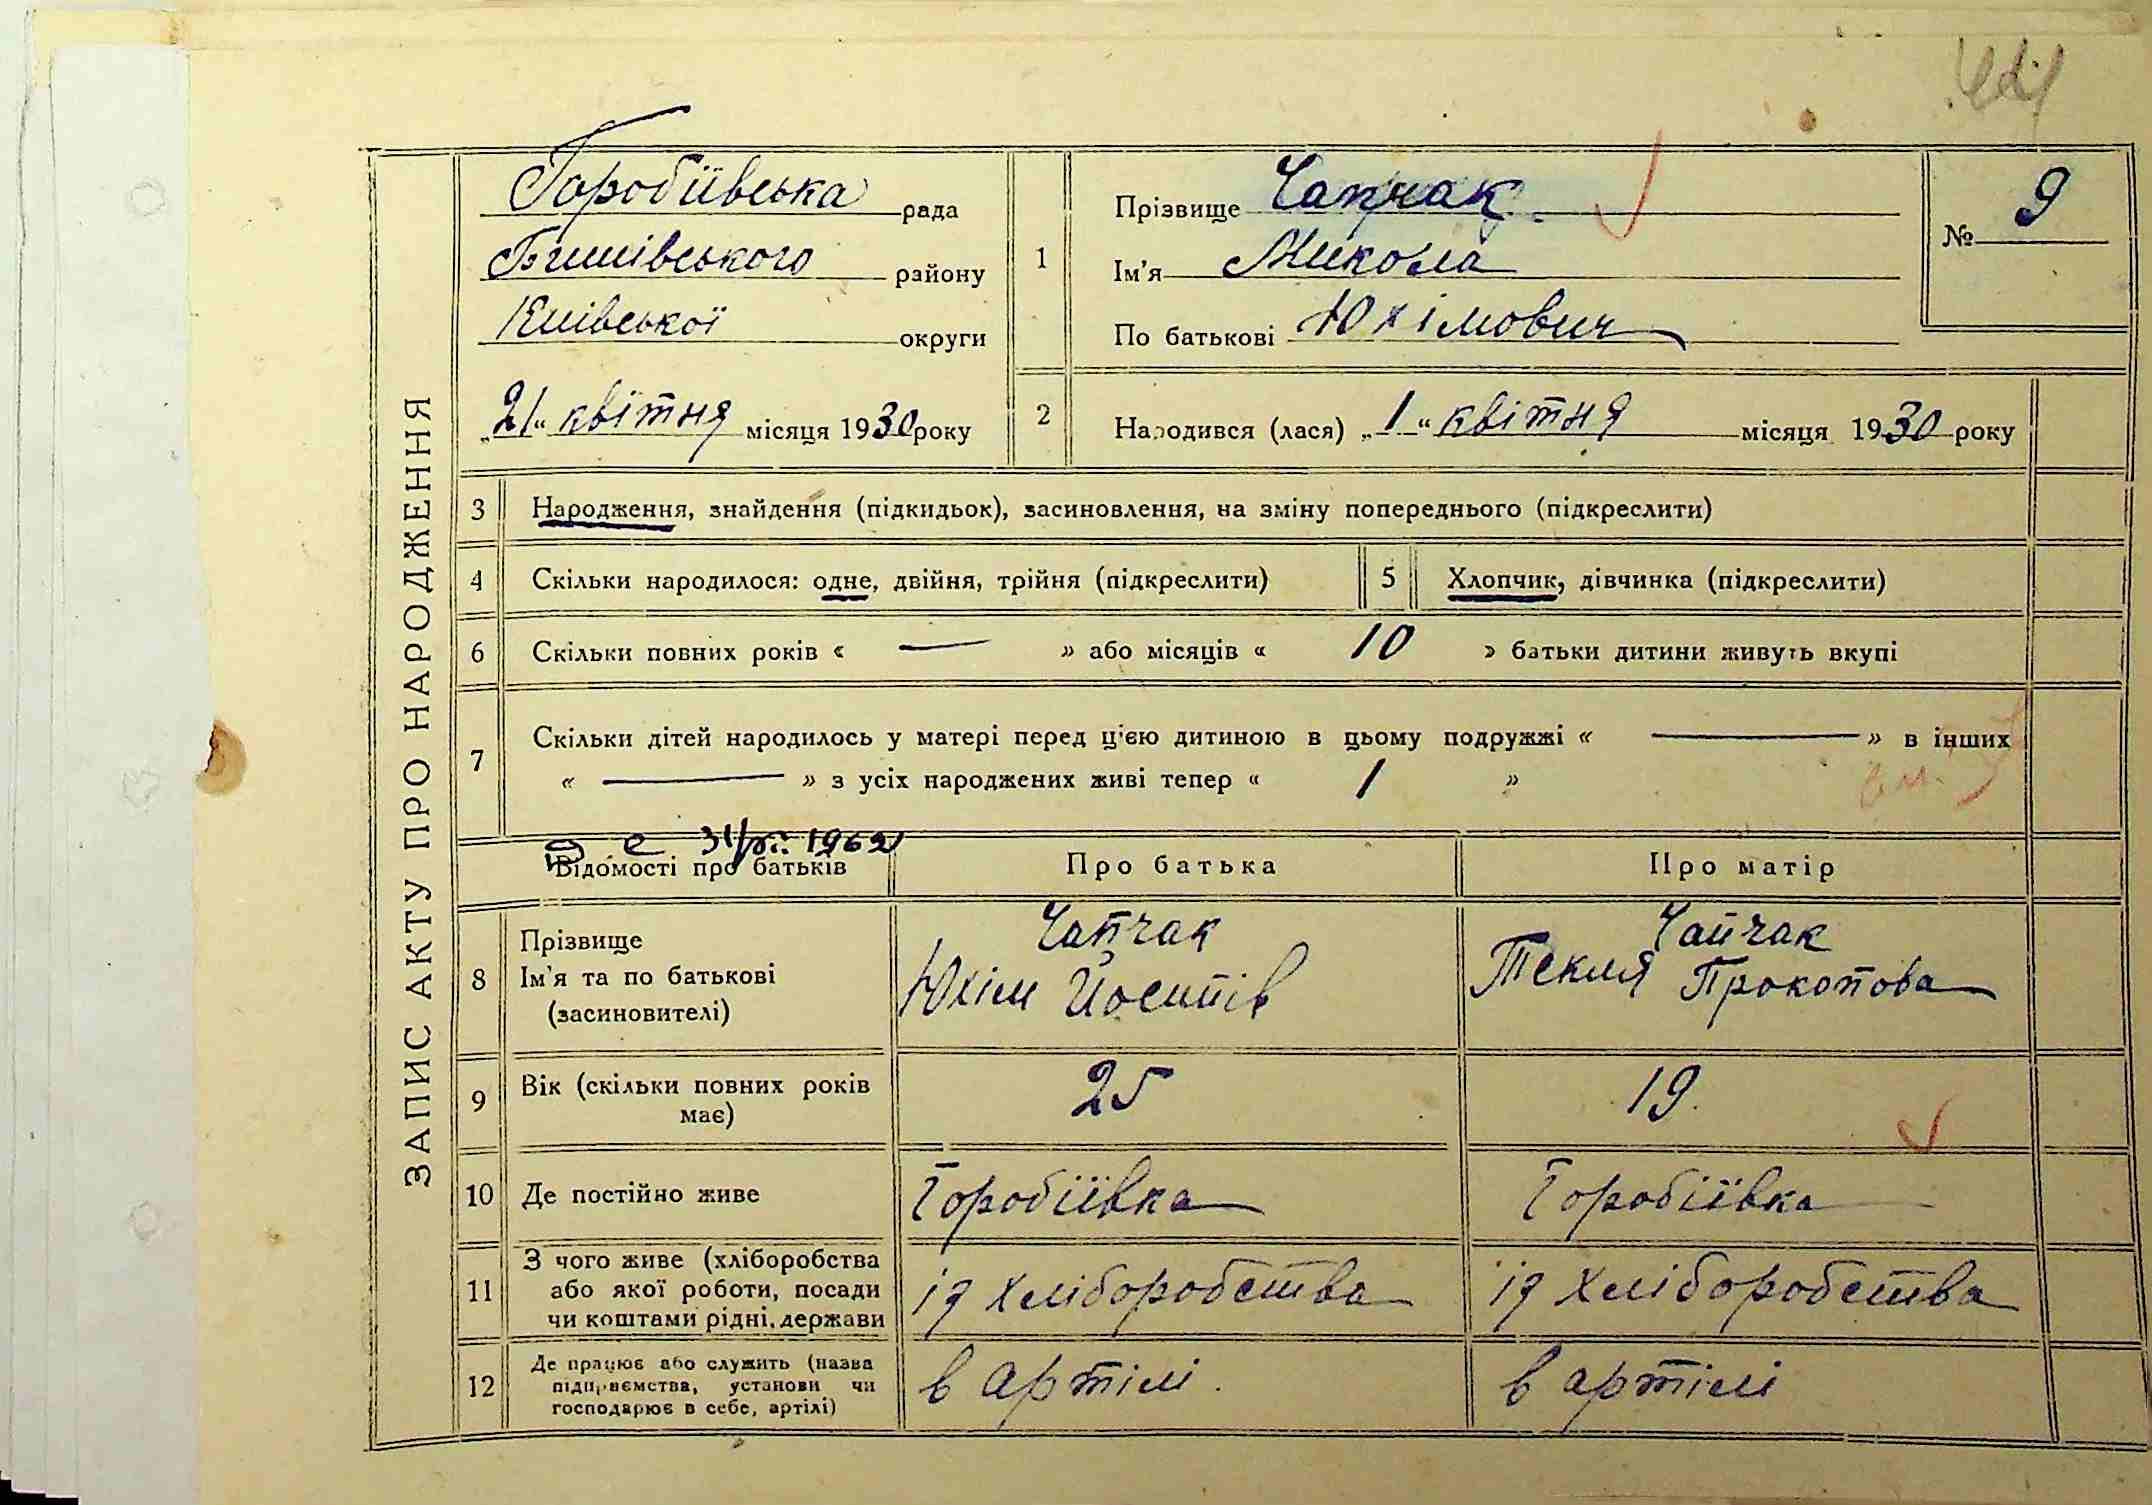 ЗАПИС АКТУ ПРО НАРОДЖЕННЯ
Горобіївська рада
Бишівського району
Київської округи
„21“ квітня місяця 1930 року
1
Прізвище Чапчак
Ім'я Микола
По батькові Юхімович
№ 9
2
Народився (лася) „1“ квітня місяця 1930 року
3 Народження, знайдення (підкидьок), засиновлення, на зміну попереднього (підкреслити)
4 Скільки народилося: одне, двійня, трійня (підкреслити)
5 Хлопчик, дівчинка (підкреслити)
6 Скільки повних років « — » або місяців « 10 » батьки дитини живуть вкупі
7 Скільки дітей народилось у матері перед цією дитиною в цьому подружжі « — » в інших
« — » з усіх народжених живі тепер « 1 »
1962
Відомості про батьків
Про батька
Про матір
8
Прізвище
Ім'я та по батькові
(засиновителі)
Чапчак
Юхім Йосипів
Чапчак
Текля Прокопова
9
Вік (скільки повних років
має)
25
19
10 Де постійно живе
Горобіївка
Горобіївка
11
З чого живе (хліборобства
або якої роботи, посади
чи коштами рідні, держави
ід хліборобства
ід хліборобства
12
Де працює або служить (назва
підприємства, установи чи
господарює в себе, артілі)
в артілі
в артілі